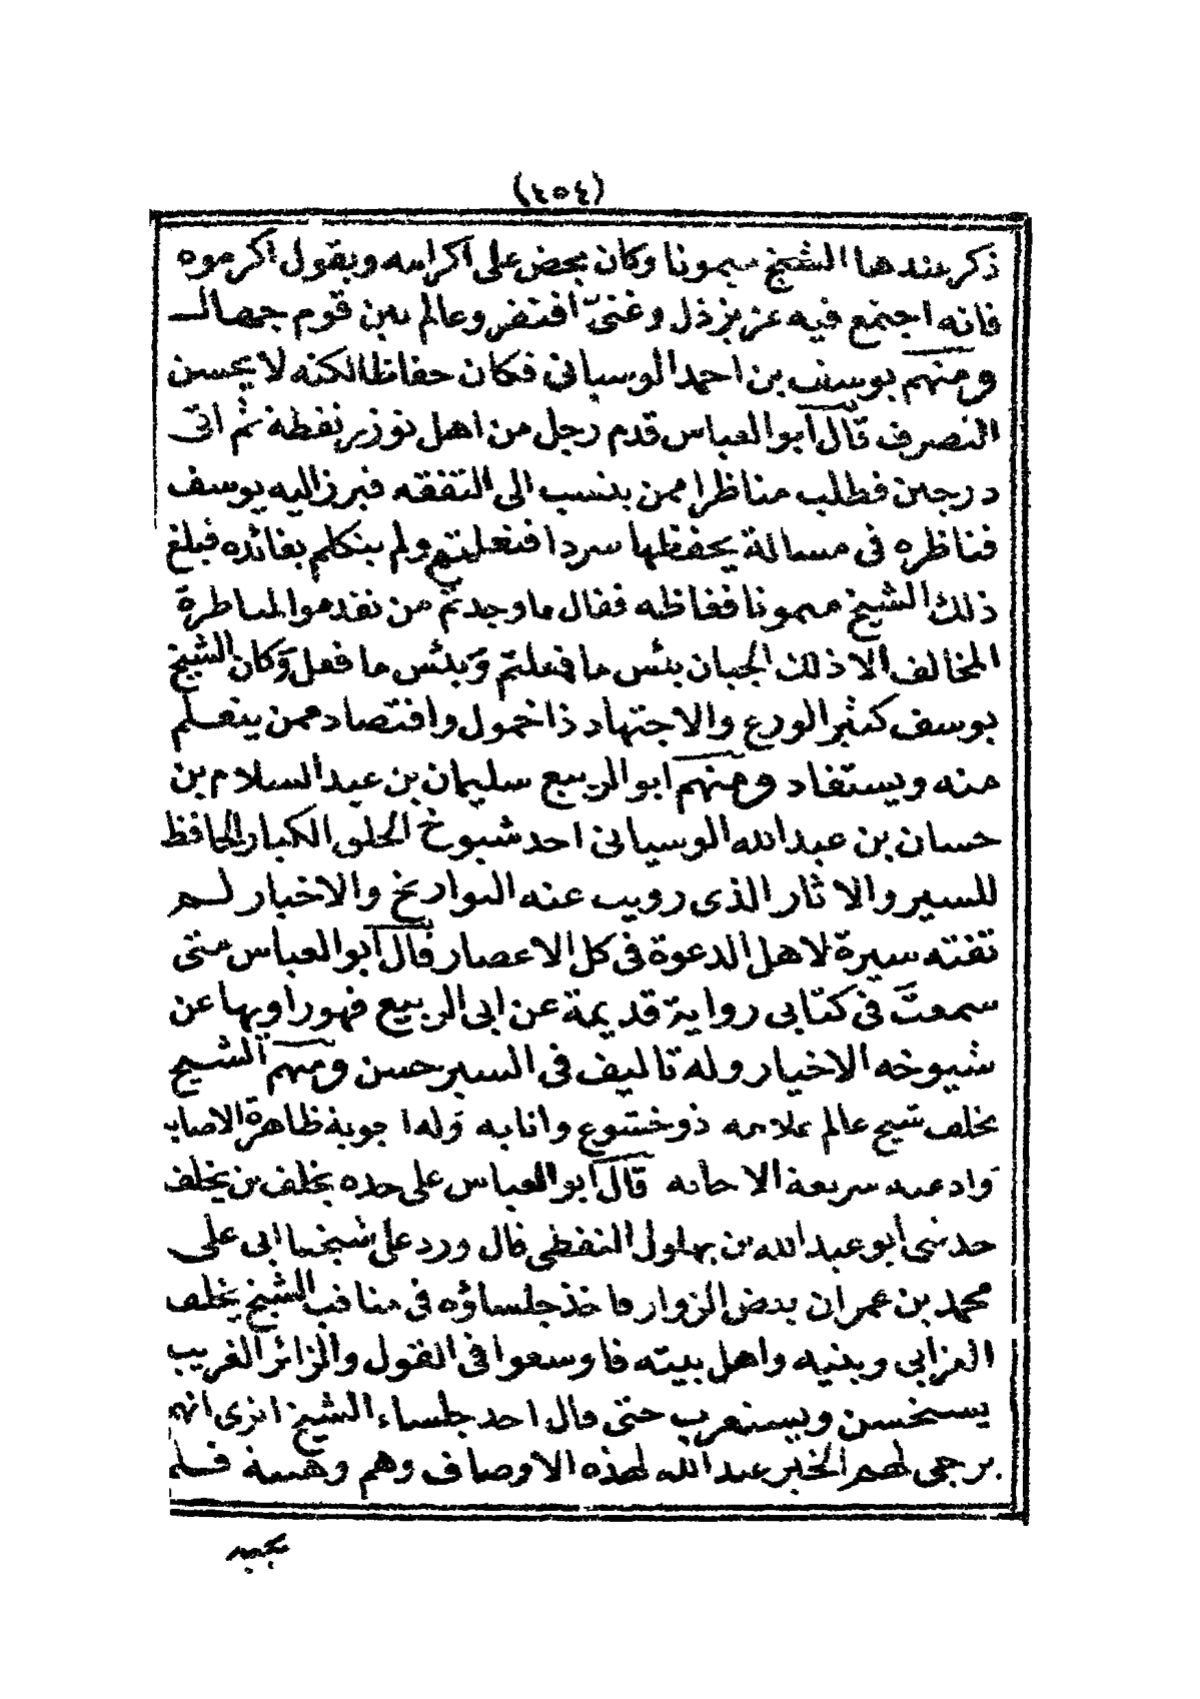 (٤٥٤)
ذكر عندها الشيخ ميمونا وكان يحض على اكرامه ويقول اكرموه
فانه اجتمع فيه عزيز ذل وغنىّ افتقر وعالم بين قوم جهال
ومنهم يوسف بن احمد الوسيانى فكان حفاظا لكنه لا يحسن
التصرف قال ابو العباس قدم رجل من اهل توزير نفطة ثم اتى
درجين فطلب مناظرا ممن ينسب الى التفقه فبرز اليه يوسف
فناظره فى مسالة يحفظها سردا ولم يتكلم بفائده فبلغ
ذلك الشيخ ميمونا فغاظه فقال ما وجدتم من تقدموا لمناظرة
المخالف الا ذلك الجبان بئس ما فعلتم وبئس ما فعل وكان الشيخ
يوسف كثير الورع والاجتهاد ذا خمول واقتصاد ممن يتعلم
منه ويستفاد ومنهم ابو الربيع سليمان بن عبد السلام بن
حسان بن عبد الله الوسيانى احد شيوخ الحلق الكبار الحافظ
للسير والاثار الذى رويت عنه التواريخ والاخبار لم
تفته سيرة لاهل الدعوة فى كل الاعصار قال ابو العباس متى
سمعت فى كتابى رواية قديمة عن ابى الربيع فهو راويها عن
شيوخه الاخيار وله تاليف فى السير حسن ومنهم الشيخ
يخلف شيخ عالم علامه ذو خشوع وانابه وله اجوبة ظاهرة الاصابه
وادعيه سريعة الاجابه قال ابو العباس على جده يخلف بن يخلف
حدثنى ابو عبد الله بن بهلول النفطى قال ورد على شيخنا ابى على
محمد بن عمران بعض الزوار فاخذ جلساؤه فى مناقب الشيخ يخلف
العزابى وبنيه واهل بيته فاوسعوا فى القول والزائر الغريب
يستحسن ويستغرب حتى قال احد جلساء الشيخ اترى انهم
يرجى لهم الخير عند الله لهذه الاوصاف وهم وهبية فلم
يجبه